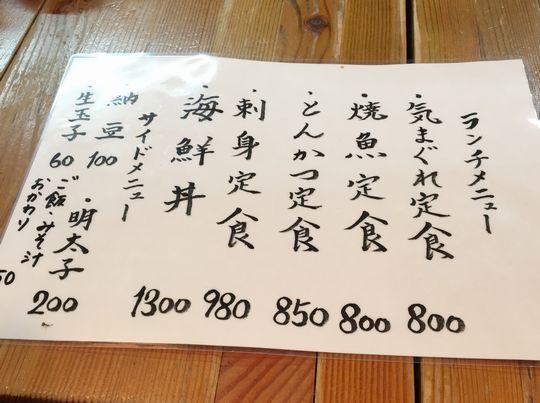 ランチメニュー
・気まぐれ定食 800
・焼魚定食 800
・とんかつ定食 850
・刺身定食 980
・海鮮丼 1300
サイドメニュー
・納豆 100
・明太子 200
・生玉子 60
ご飯・みそ汁
おかわり
50